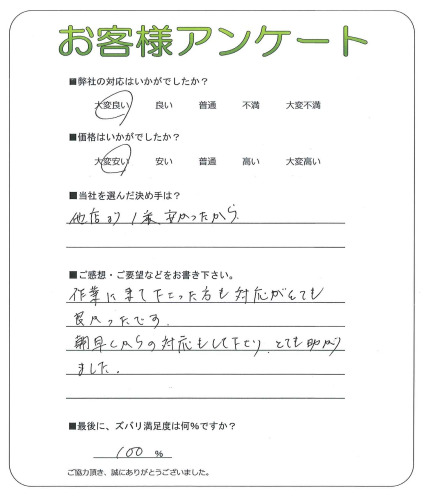 お客様アンケート
■弊社の対応はいかがでしたか？
大変良い 良い 普通 不満 大変不満
■価格はいかがでしたか？
大変安い 安い 普通 高い 大変高い
■当社を選んだ決め手は？
他店より1番安かったから
■ご感想・ご要望などをお書き下さい。
作業に来て下さった方も対応がとても
良かったです.
朝早くからの対応もして下さり、とても助かり
ました.
■最後に、ズバリ満足度は何％ですか？
100 ％
ご協力頂き、誠にありがとうございました。